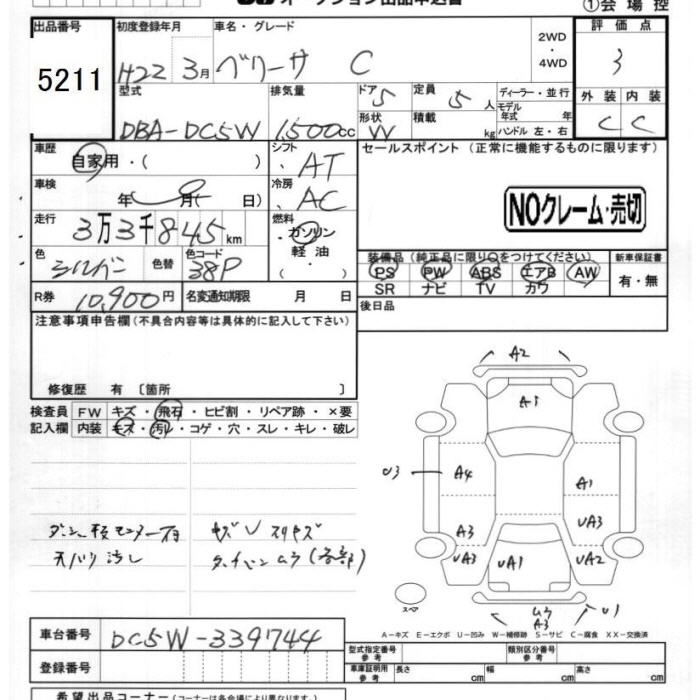 オークション出品申込書
①会場控
出品番号 初度登録年月 車名・グレード 2WD ・ 4WD 評価点
5211 H22 3月 ベリーサ C 3
型式 排気量 ドア 5 定員 5人 ディーラー・並行 外装 内装
DBA-DC5W 1,500cc 形状 W 積載 kg モデル年式 年 ハンドル 左・右 C C
車歴 自家用・( ) シフト AT セールスポイント (正常に機能するものに限ります)
車検 年 月( 日) 冷房 AC NOクレーム・売切
走行 3万3千845km 燃料 ガソリン 軽油 ・( )
色 シルバー 色替 色コード 38P 装備品(純正品に限り○をつけてください。) 新車保証書
PS PW ABS エアB AW 有・無
SR ナビ TV カワ
R券 10,900円 名変通知期限 月 日 後日品
注意事項申告欄(不具合内容等は具体的に記入して下さい)
修復歴 有 〔箇所 〕
検査員 FW キズ・飛石・ヒビ割・リペア跡・×要
記入欄 内装 キズ・汚レ・コゲ・穴・スレ・キレ・破レ
天バリ汚レ
A2
A3
U3 A4 A1
A3 UA3
UA3 UA1 UA2
スペア
ムラ A3 U1
A-キズ E-エクボ U-凹み W-補修跡 S-サビ C-腐食 XX-交換済
車台番号 DC5W-339744
登録番号
型式指定番号 参考 類別区分番号 参考
車庫証明用 参考 長さ cm 幅 cm 高さ cm
希望出品コーナー(コーナーは各会場により異なります。)